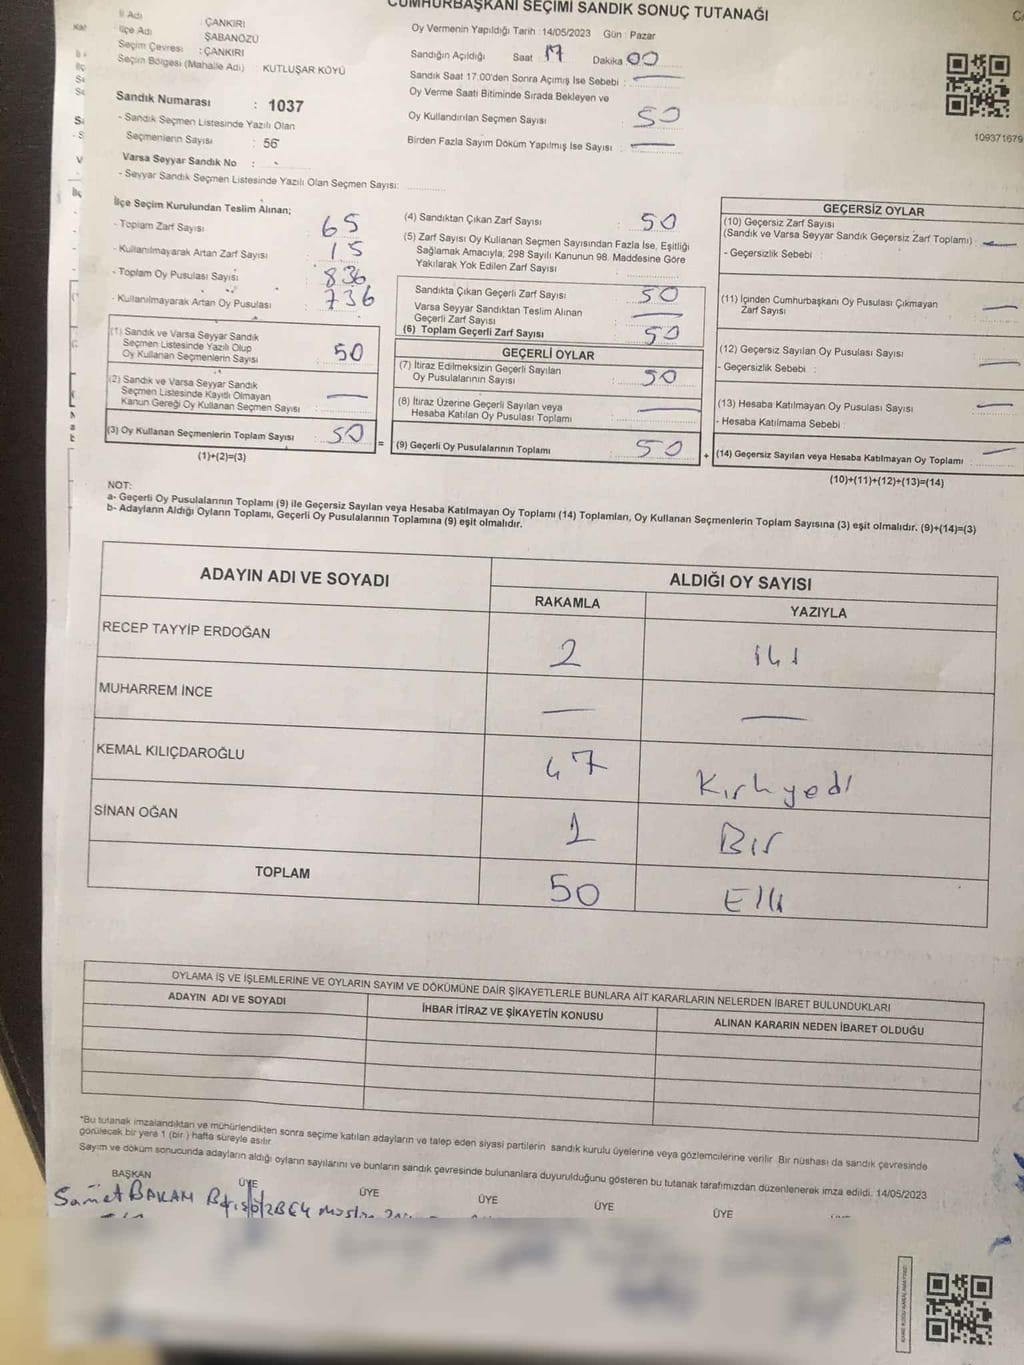 CUMHURBAŞKANI SEÇİMİ SANDIK SONUÇ TUTANAĞI
İl Adı ÇANKIRI
İlçe Adı ŞABANÖZÜ
Seçim Çevresi : ÇANKIRI
Seçim Bölgesi (Mahalle Adı) : KUTLUŞAR KÖYÜ
Sandık Numarası : 1037
- Sandık Seçmen Listesinde Yazılı Olan
Seçmenlerin Sayısı : 56
Varsa Seyyar Sandık No :
- Seyyar Sandık Seçmen Listesinde Yazılı Olan Seçmen Sayısı:
Oy Vermenin Yapıldığı Tarih : 14/05/2023 Gün : Pazar
Sandığın Açıldığı Saat 17 Dakika 00
Sandık Saat 17.00'den Sonra Açımış İse Sebebi : —
Oy Verme Saati Bitiminde Sırada Bekleyen ve
Oy Kullandırılan Seçmen Sayısı : 50
Birden Fazla Sayım Döküm Yapılmış İse Sayısı : —
109371679
İlçe Seçim Kurulundan Teslim Alınan;
- Toplam Zarf Sayısı : 65
- Kullanılmayarak Artan Zarf Sayısı : 15
- Toplam Oy Pusulası Sayısı : 836
- Kullanılmayarak Artan Oy Pusulası : 736
(1) Sandık ve Varsa Seyyar Sandık
Seçmen Listesinde Yazılı Olup
Oy Kullanan Seçmenlerin Sayısı : 50
(2) Sandık ve Varsa Seyyar Sandık
Seçmen Listesinde Kayıtlı Olmayan
Kanun Gereği Oy Kullanan Seçmen Sayısı : —
(3) Oy Kullanan Seçmenlerin Toplam Sayısı : 50 =
(1)+(2)=(3)
(4) Sandıktan Çıkan Zarf Sayısı : 50
(5) Zarf Sayısı Oy Kullanan Seçmen Sayısından Fazla İse, Eşitliği
Sağlamak Amacıyla, 298 Sayılı Kanunun 98. Maddesine Göre
Yakılarak Yok Edilen Zarf Sayısı :
Sandıkta Çıkan Geçerli Zarf Sayısı : 50
Varsa Seyyar Sandıktan Teslim Alınan
Geçerli Zarf Sayısı : —
(6) Toplam Geçerli Zarf Sayısı : 50
GEÇERLİ OYLAR
(7) İtiraz Edilmeksizin Geçerli Sayılan
Oy Pusulalarının Sayısı : 50
(8) İtiraz Üzerine Geçerli Sayılan veya
Hesaba Katılan Oy Pusulaları Toplamı : —
(9) Geçerli Oy Pusulalarının Toplamı : 50 +
GEÇERSİZ OYLAR
(10) Geçersiz Zarf Sayısı
(Sandık ve Varsa Seyyar Sandık Geçersiz Zarf Toplamı) : —
- Geçersizlik Sebebi :
(11) İçinden Cumhurbaşkanı Oy Pusulası Çıkmayan
Zarf Sayısı : —
(12) Geçersiz Sayılan Oy Pusulası Sayısı : —
- Geçersizlik Sebebi :
(13) Hesaba Katılmayan Oy Pusulası Sayısı : —
- Hesaba Katılmama Sebebi :
(14) Geçersiz Sayılan veya Hesaba Katılmayan Oy Toplamı : —
(10)+(11)+(12)+(13)=(14)
NOT:
a- Geçerli Oy Pusulalarının Toplamı (9) ile Geçersiz Sayılan veya Hesaba Katılmayan Oy Toplamı (14) Toplamları, Oy Kullanan Seçmenlerin Toplam Sayısına (3) eşit olmalıdır. (9)+(14)=(3)
b- Adayların Aldığı Oyların Toplamı, Geçerli Oy Pusulalarının Toplamına (9) eşit olmalıdır.
ADAYIN ADI VE SOYADI ALDIĞI OY SAYISI
RAKAMLA YAZIYLA
RECEP TAYYİP ERDOĞAN 2 iki
MUHARREM İNCE — —
KEMAL KILIÇDAROĞLU 47 Kırkyedi
SİNAN OĞAN 1 Bir
TOPLAM 50 Elli
OYLAMA İŞ VE İŞLEMLERİNE VE OYLARIN SAYIM VE DÖKÜMÜNE DAİR ŞİKAYETLERLE BUNLARA AİT KARARLARIN NELERDEN İBARET BULUNDUKLARI
ADAYIN ADI VE SOYADI İHBAR İTİRAZ VE ŞİKAYETİN KONUSU ALINAN KARARIN NEDEN İBARET OLDUĞU
*Bu tutanak imzalandıktan ve mühürlendikten sonra seçime katılan adayların ve talep eden siyasi partilerin sandık kurulu üyelerine veya gözlemcilerine verilir. Bir nüshası da sandık çevresinde
görülecek bir yere 1 (bir) hafta süreyle asılır.
Sayım ve döküm sonucunda adayların aldığı oyların sayılarını ve bunların sandık çevresinde bulunanlara duyurulduğunu gösteren bu tutanak tarafımızdan düzenlenerek imza edildi. 14/05/2023
BAŞKAN ÜYE ÜYE ÜYE ÜYE ÜYE
Samet BAKAM